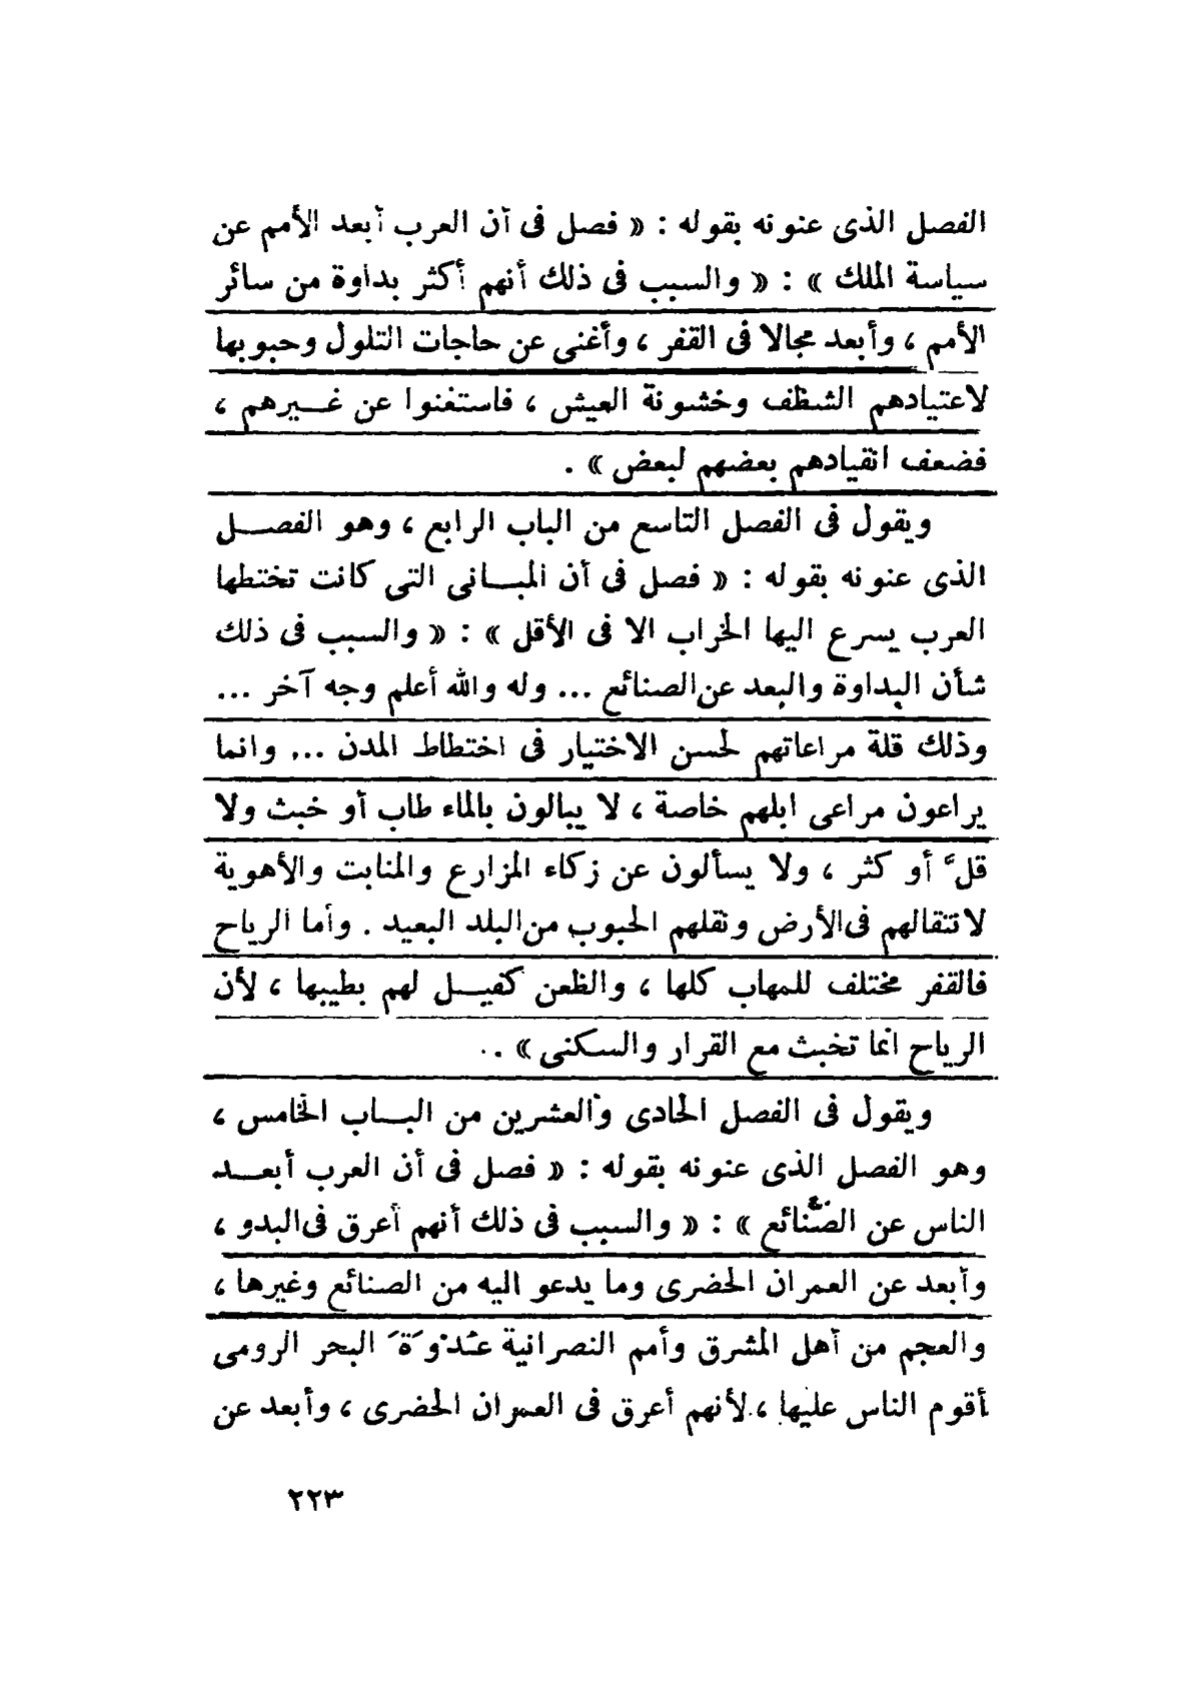 الفصل الذى عنونه بقوله : « فصل فى أن العرب أبعد الأمم عن
سياسة الملك » : « والسبب فى ذلك أنهم أكثر بداوة من سائر
الأمم ، وأبعد مجالا فى القفر ، وأغنى عن حاجات التلول وحبوبها
لاعتيادهم الشظف وخشونة العيش ، فاستغنوا عن غـــيرهم ،
فضعف انقيادهم بعضهم لبعض » .
ويقول فى الفصل التاسع من الباب الرابع ، وهو الفصــل
الذى عنونه بقوله : « فصل فى أن المبــانى التى كانت تختطها
العرب يسرع اليها الخراب الا فى الأقل » : « والسبب فى ذلك
شأن البداوة والبعد عن الصنائع ... وله والله أعلم وجه آخر ...
وذلك قلة مراعاتهم لحسن الاختيار فى اختطاط المدن ... وانما
يراعون مراعى ابلهم خاصة ، لا يبالون بالماء طاب أو خبث ولا
قلَّ أو كثر ، ولا يسألون عن زكاء المزارع والمنابت والأهوية
لانتقالهم فى الأرض ونقلهم الحبوب من البلد البعيد . وأما الرياح
فالقفر مختلف للمهاب كلها ، والظعن كفيــل لهم بطيبها ، لأن
الرياح انما تخبث مع القرار والسكنى » .
ويقول فى الفصل الحادى والعشرين من البــاب الخامس ،
وهو الفصل الذى عنونه بقوله : « فصل فى أن العرب أبعــد
الناس عن الصنائع » : « والسبب فى ذلك أنهم أعرق فى البدو ،
وأبعد عن العمران الحضرى وما يدعو اليه من الصنائع وغيرها ،
والعجم من أهل المشرق وأمم النصرانية عُدْوَةَ البحر الرومى
أقوم الناس عليها ، لأنهم أعرق فى العمران الحضرى ، وأبعد عن
٢٢٣